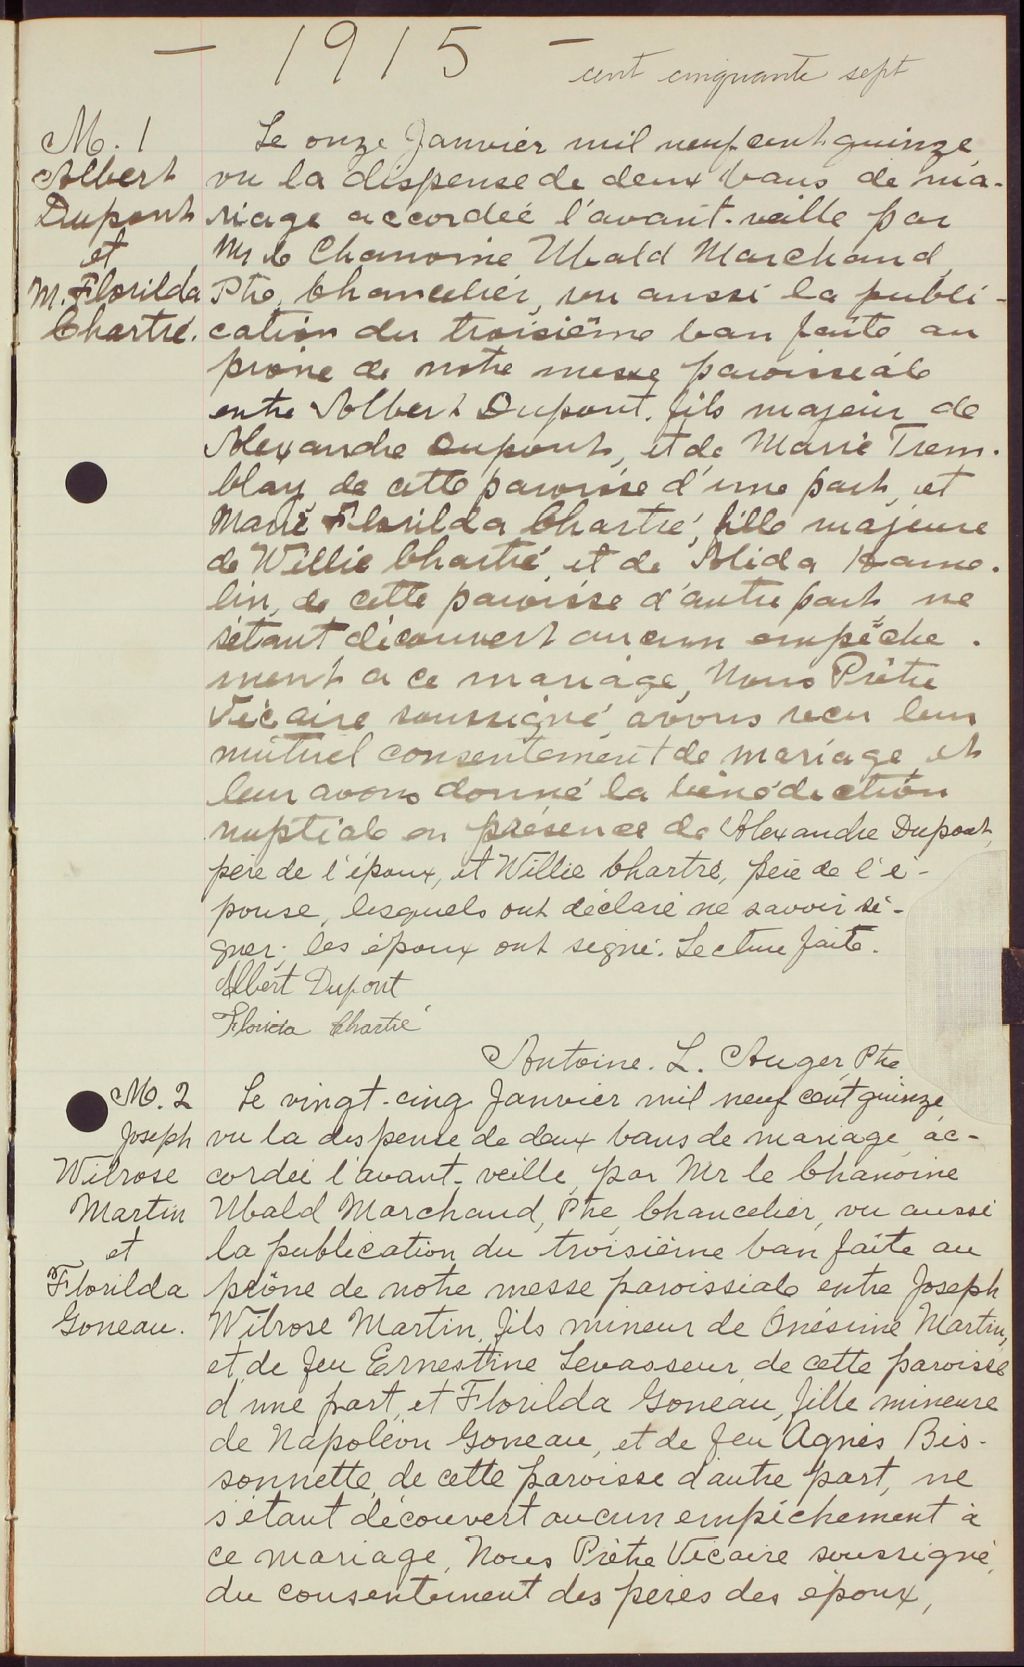 — 1915 —
cent cinquante sept
M. 1
Albert
Dupont
et
M. Florilda
Chartré.
Le onze Janvier mil neuf cent quinze,
vu la dispense de deux bans de ma-
riage accordée l'avant-veille par
Mr le Chanoine Ubald Marchand,
Ptre, Chancelier, vu aussi la publi-
cation du troisième ban faite au
prône de notre messe paroissiale
entre Albert Dupont, fils majeur de
Alexandre Dupont, et de Marie Trem-
blay, de cette paroisse d'une part, et
Marie Florilda Chartré, fille majeure
de Willie Chartré, et de Alida Hame-
lin, de cette paroisse d'autre part, ne
s'étant découvert aucun empêche-
ment a ce mariage, Nous Prêtre
Vicaire soussigné, avons recu leur
mutuel consentement de mariage, et
leur avons donné la bénédiction
nuptiale en présence de Alexandre Dupont,
père de l'époux, et Willie Chartré, père de l'é-
pouse, lesquels ont déclaré ne savoir si-
gner; les époux ont signé. Lecture faite.
Albert Dupont
Florida Chartré
Antoine. L. Auger, Ptre
M. 2
Joseph
Wilrose
Martin
et
Florilda
Goneau.
Le vingt-cinq Janvier mil neuf cent quinze
vu la dispense de deux bans de mariage ac-
cordée l'avant-veille, par Mr le Chanoine
Ubald Marchand, Ptre, Chancelier, vu aussi
la publication du troisième ban faite au
prône de notre messe paroissiale entre Joseph
Wilrose Martin, fils mineur de Onésime Martin,
et de feu Ernestine Levasseur, de cette paroisse
d'une part, et Florilda Goneau, fille mineure
de Napoléon Goneau, et de feu Agnès Bis-
sonnette, de cette paroisse d'autre part, ne
s'étant découvert aucun empêchement à
ce mariage, Nous Prêtre Vicaire soussigné,
du consentement des pères des époux,